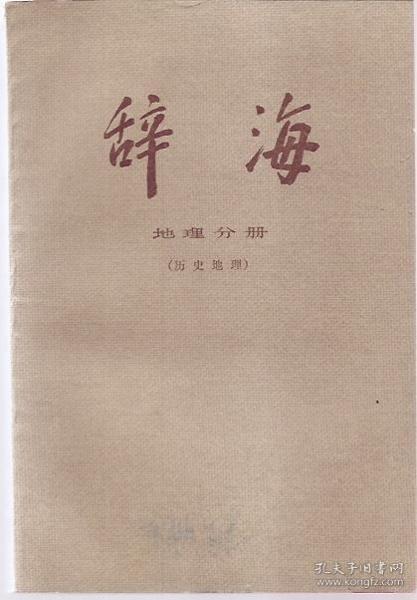 辞海
地理分册
(历史地理)
孔夫子旧书网
www.kongfz.com